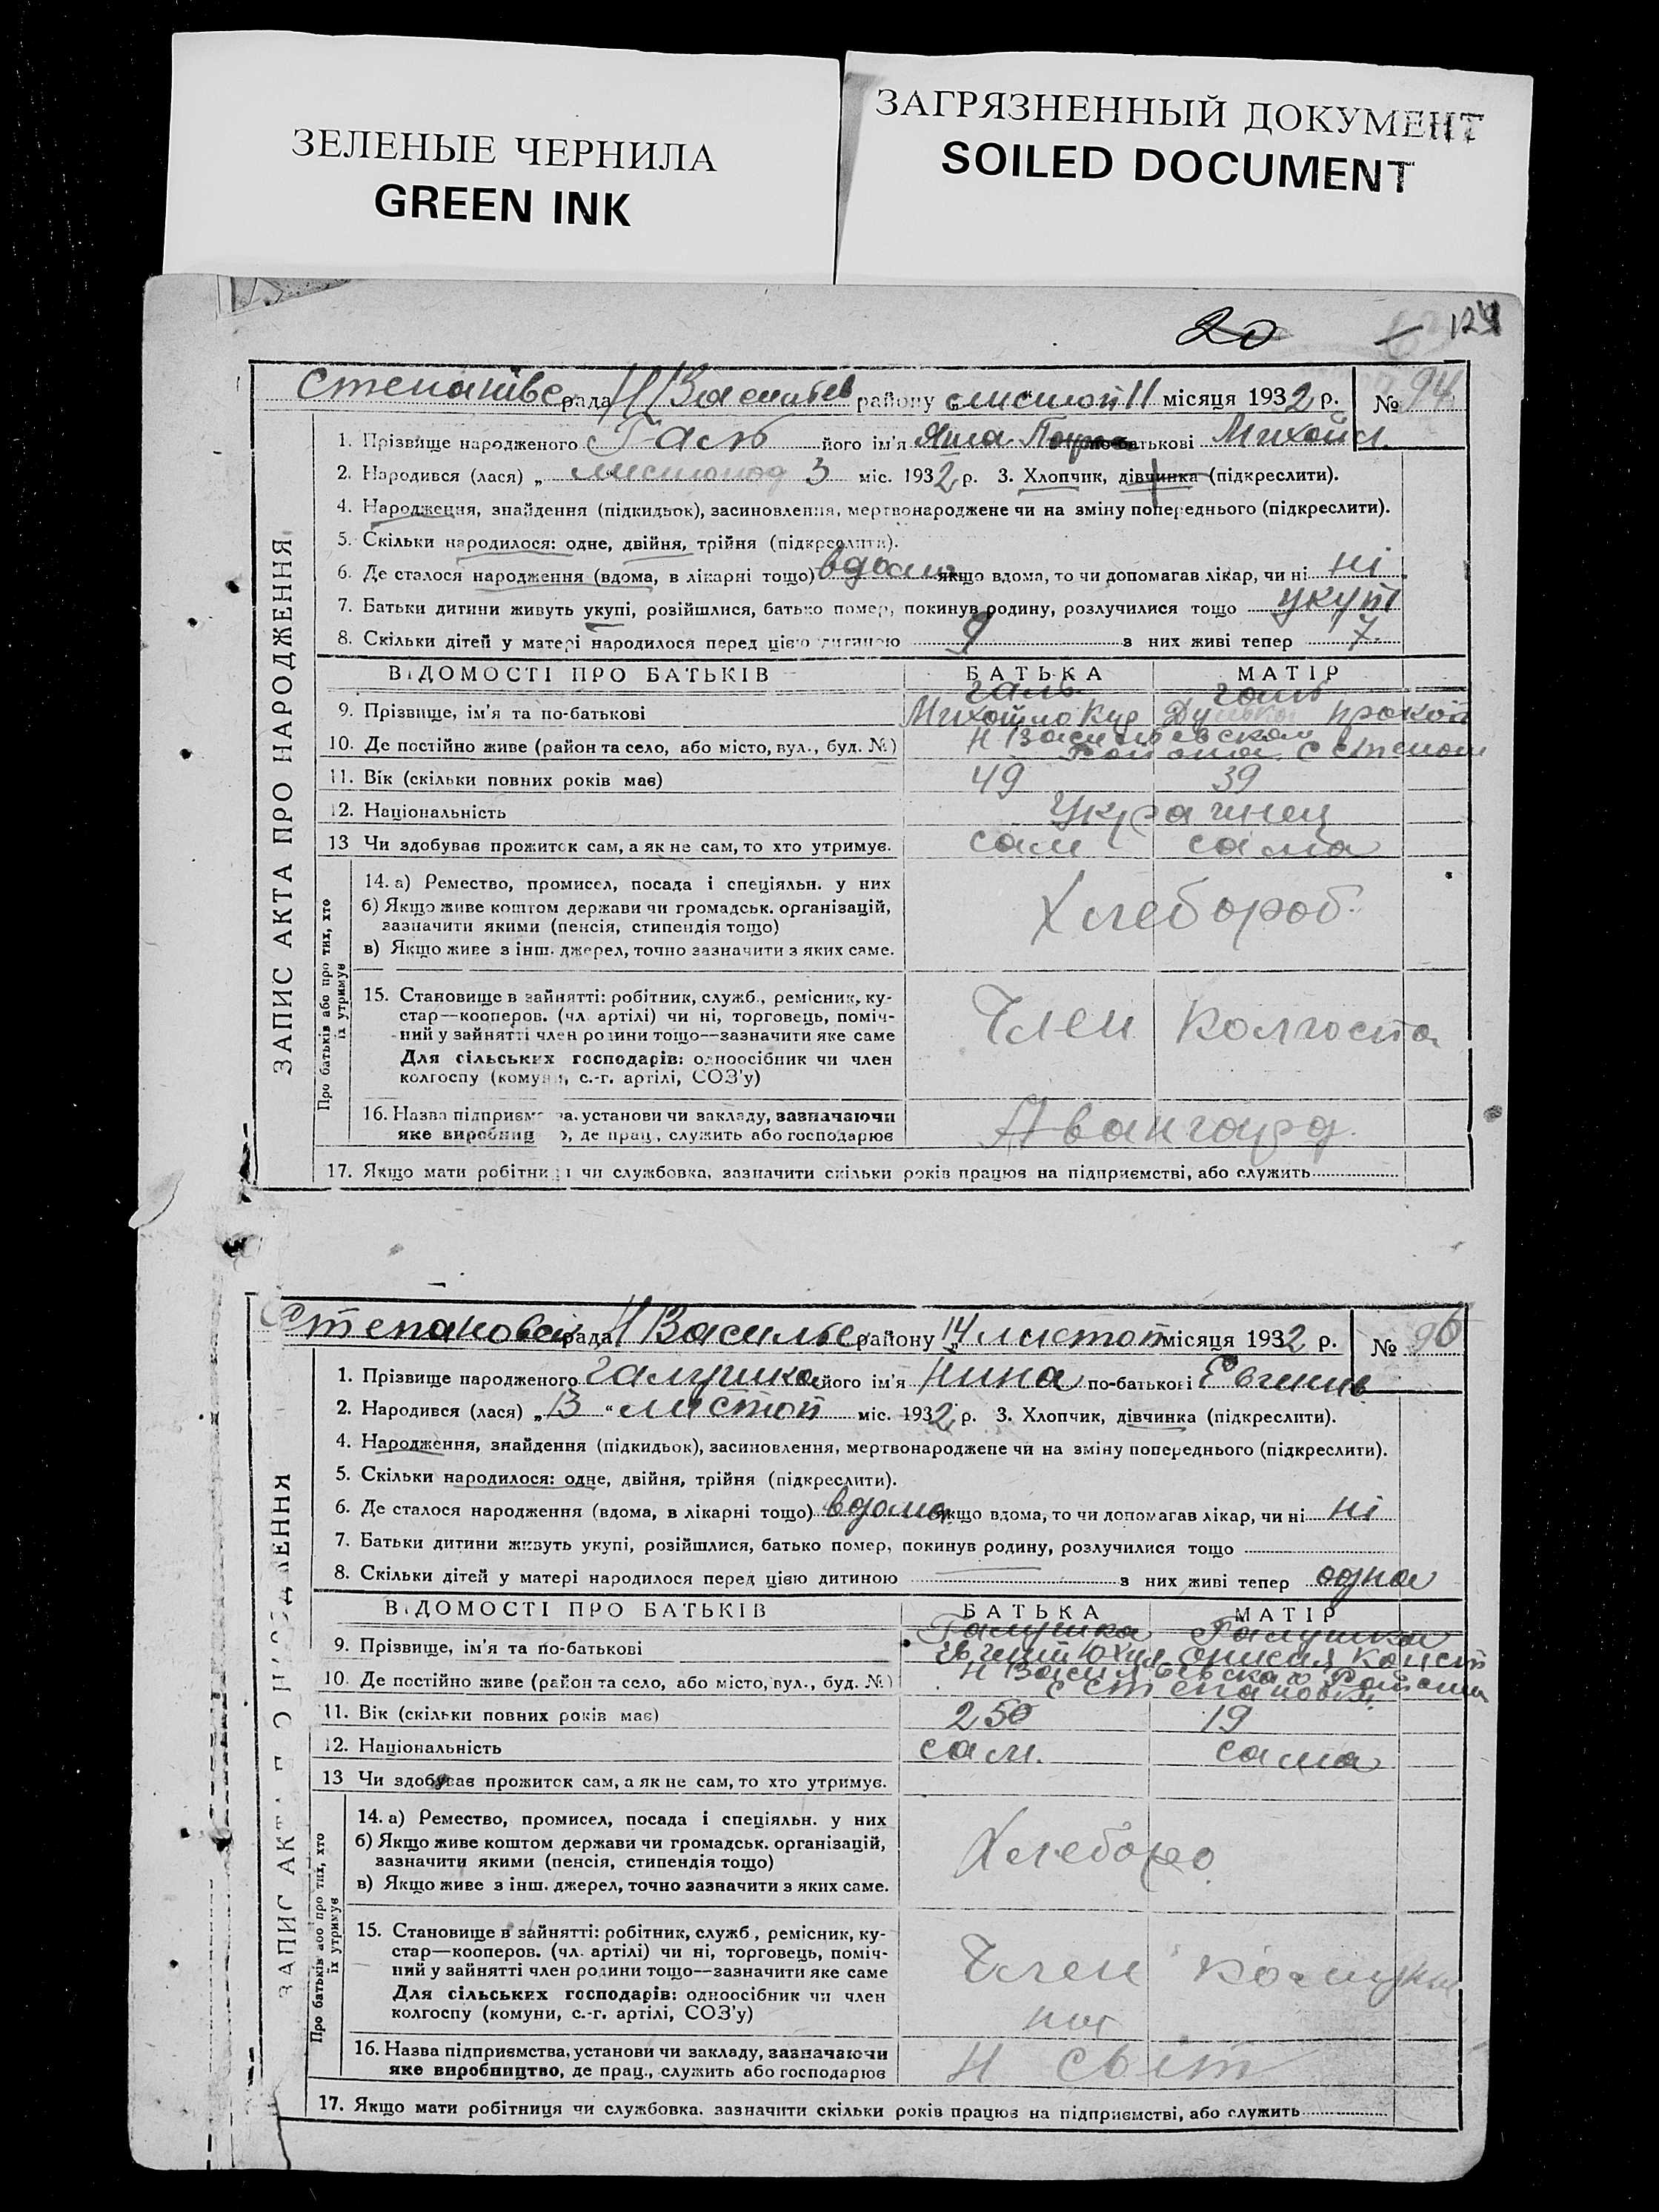 ЗЕЛЕНЫЕ ЧЕРНИЛА
GREEN INK
ЗАГРЯЗНЕННЫЙ ДОКУМЕНТ
SOILED DOCUMENT
20
124
рада Н Васильев району 11 місяця 1932 р. № 94
1. Прізвище народженого Галь його ім'я по-батькові Михайл.
2. Народився (лася) „ листопад 3 міс. 1932 р. 3. Хлопчик, дівчинка (підкреслити).
4. Народження, знайдення (підкидьок), засиновлення, мертвонароджене чи на зміну попереднього (підкреслити).
5. Скільки народилося: одне, двійня, трійня (підкреслити).
6. Де сталося народження (вдома, в лікарні тощо) вдома якщо вдома, то чи допомагав лікар, чи ні ні
7. Батьки дитини живуть укупі, розійшлися, батько помер, покинув родину, розлучилися тощо укупі
8. Скільки дітей у матері народилося перед цією дитиною 9 з них живі тепер 7
ВІДОМОСТІ ПРО БАТЬКІВ БАТЬКА МАТІР
галь галь
9. Прізвище, ім'я та по-батькові Михайло прокоп
10. Де постійно живе (район та село, або місто, вул., буд. №) Н Васильевском
района с степан
11. Вік (скільки повних років має) 49 39
12. Національність Украинец
13 Чи здобуває прожиток сам, а як не сам, то хто утримує. сам сама
ЗАПИС АКТА ПРО НАРОДЖЕННЯ
Про батьків або про тих, хто
їх утримує
14. а) Ремество, промисел, посада і спеціяльн. у них
б) Якщо живе коштом держави чи громадськ. організацій,
зазначити якими (пенсія, стипендія тощо)
в) Якщо живе з інш. джерел, точно зазначити з яких саме.
Хлебороб.
15. Становище в зайнятті: робітник, служб., ремісник, ку-
стар—кооперов. (чл. артілі) чи ні, торговець, поміч-
ний у зайнятті член родини тощо—зазначити яке саме
Для сільських господарів: одноосібник чи член
колгоспу (комуни, с.-г. артілі, СОЗ'у)
Член колгоспа
16. Назва підприємства, установи чи закладу, зазначаючи
яке виробництво, де прац., служить або господарює
Авангард.
17. Якщо мати робітниця чи службовка, зазначити скільки років працює на підприємстві, або служить
Степановск рада Н Василье району „14 листоп місяця 1932 р. № 96
1. Прізвище народженого галушка його ім'я Нина по-батькові Евгенив
2. Народився (лася) „ 13 “ листоп міс. 1932 р. 3. Хлопчик, дівчинка (підкреслити).
4. Народження, знайдення (підкидьок), засиновлення, мертвонароджене чи на зміну попереднього (підкреслити).
5. Скільки народилося: одне, двійня, трійня (підкреслити).
6. Де сталося народження (вдома, в лікарні тощо) вдома якщо вдома, то чи допомагав лікар, чи ні ні
7. Батьки дитини живуть укупі, розійшлися, батько помер, покинув родину, розлучилися тощо
8. Скільки дітей у матері народилося перед цією дитиною з них живі тепер одна
ВІДОМОСТІ ПРО БАТЬКІВ БАТЬКА МАТІР
Галушка Галушка
9. Прізвище, ім'я та по-батькові Евгений Юхим Конст
10. Де постійно живе (район та село, або місто, вул., буд. №) Н Васильевского Района
с степановки
11. Вік (скільки повних років має) 250 19
12. Національність сам. сама
13 Чи здобуває прожиток сам, а як не сам, то хто утримує.
ЗАПИС АКТА ПРО НАРОДЖЕННЯ
Про батьків або про тих, хто
їх утримує
14. а) Ремество, промисел, посада і спеціяльн. у них
б) Якщо живе коштом держави чи громадськ. організацій,
зазначити якими (пенсія, стипендія тощо)
в) Якщо живе з інш. джерел, точно зазначити з яких саме.
Хлеборо
15. Становище в зайнятті: робітник, служб., ремісник, ку-
стар—кооперов. (чл. артілі) чи ні, торговець, поміч-
ний у зайнятті член родини тощо—зазначити яке саме
Для сільських господарів: одноосібник чи член
колгоспу (комуни, с.-г. артілі, СОЗ'у)
Член
16. Назва підприємства, установи чи закладу, зазначаючи
яке виробництво, де прац., служить або господарює
Н світ
17. Якщо мати робітниця чи службовка, зазначити скільки років працює на підприємстві, або служить